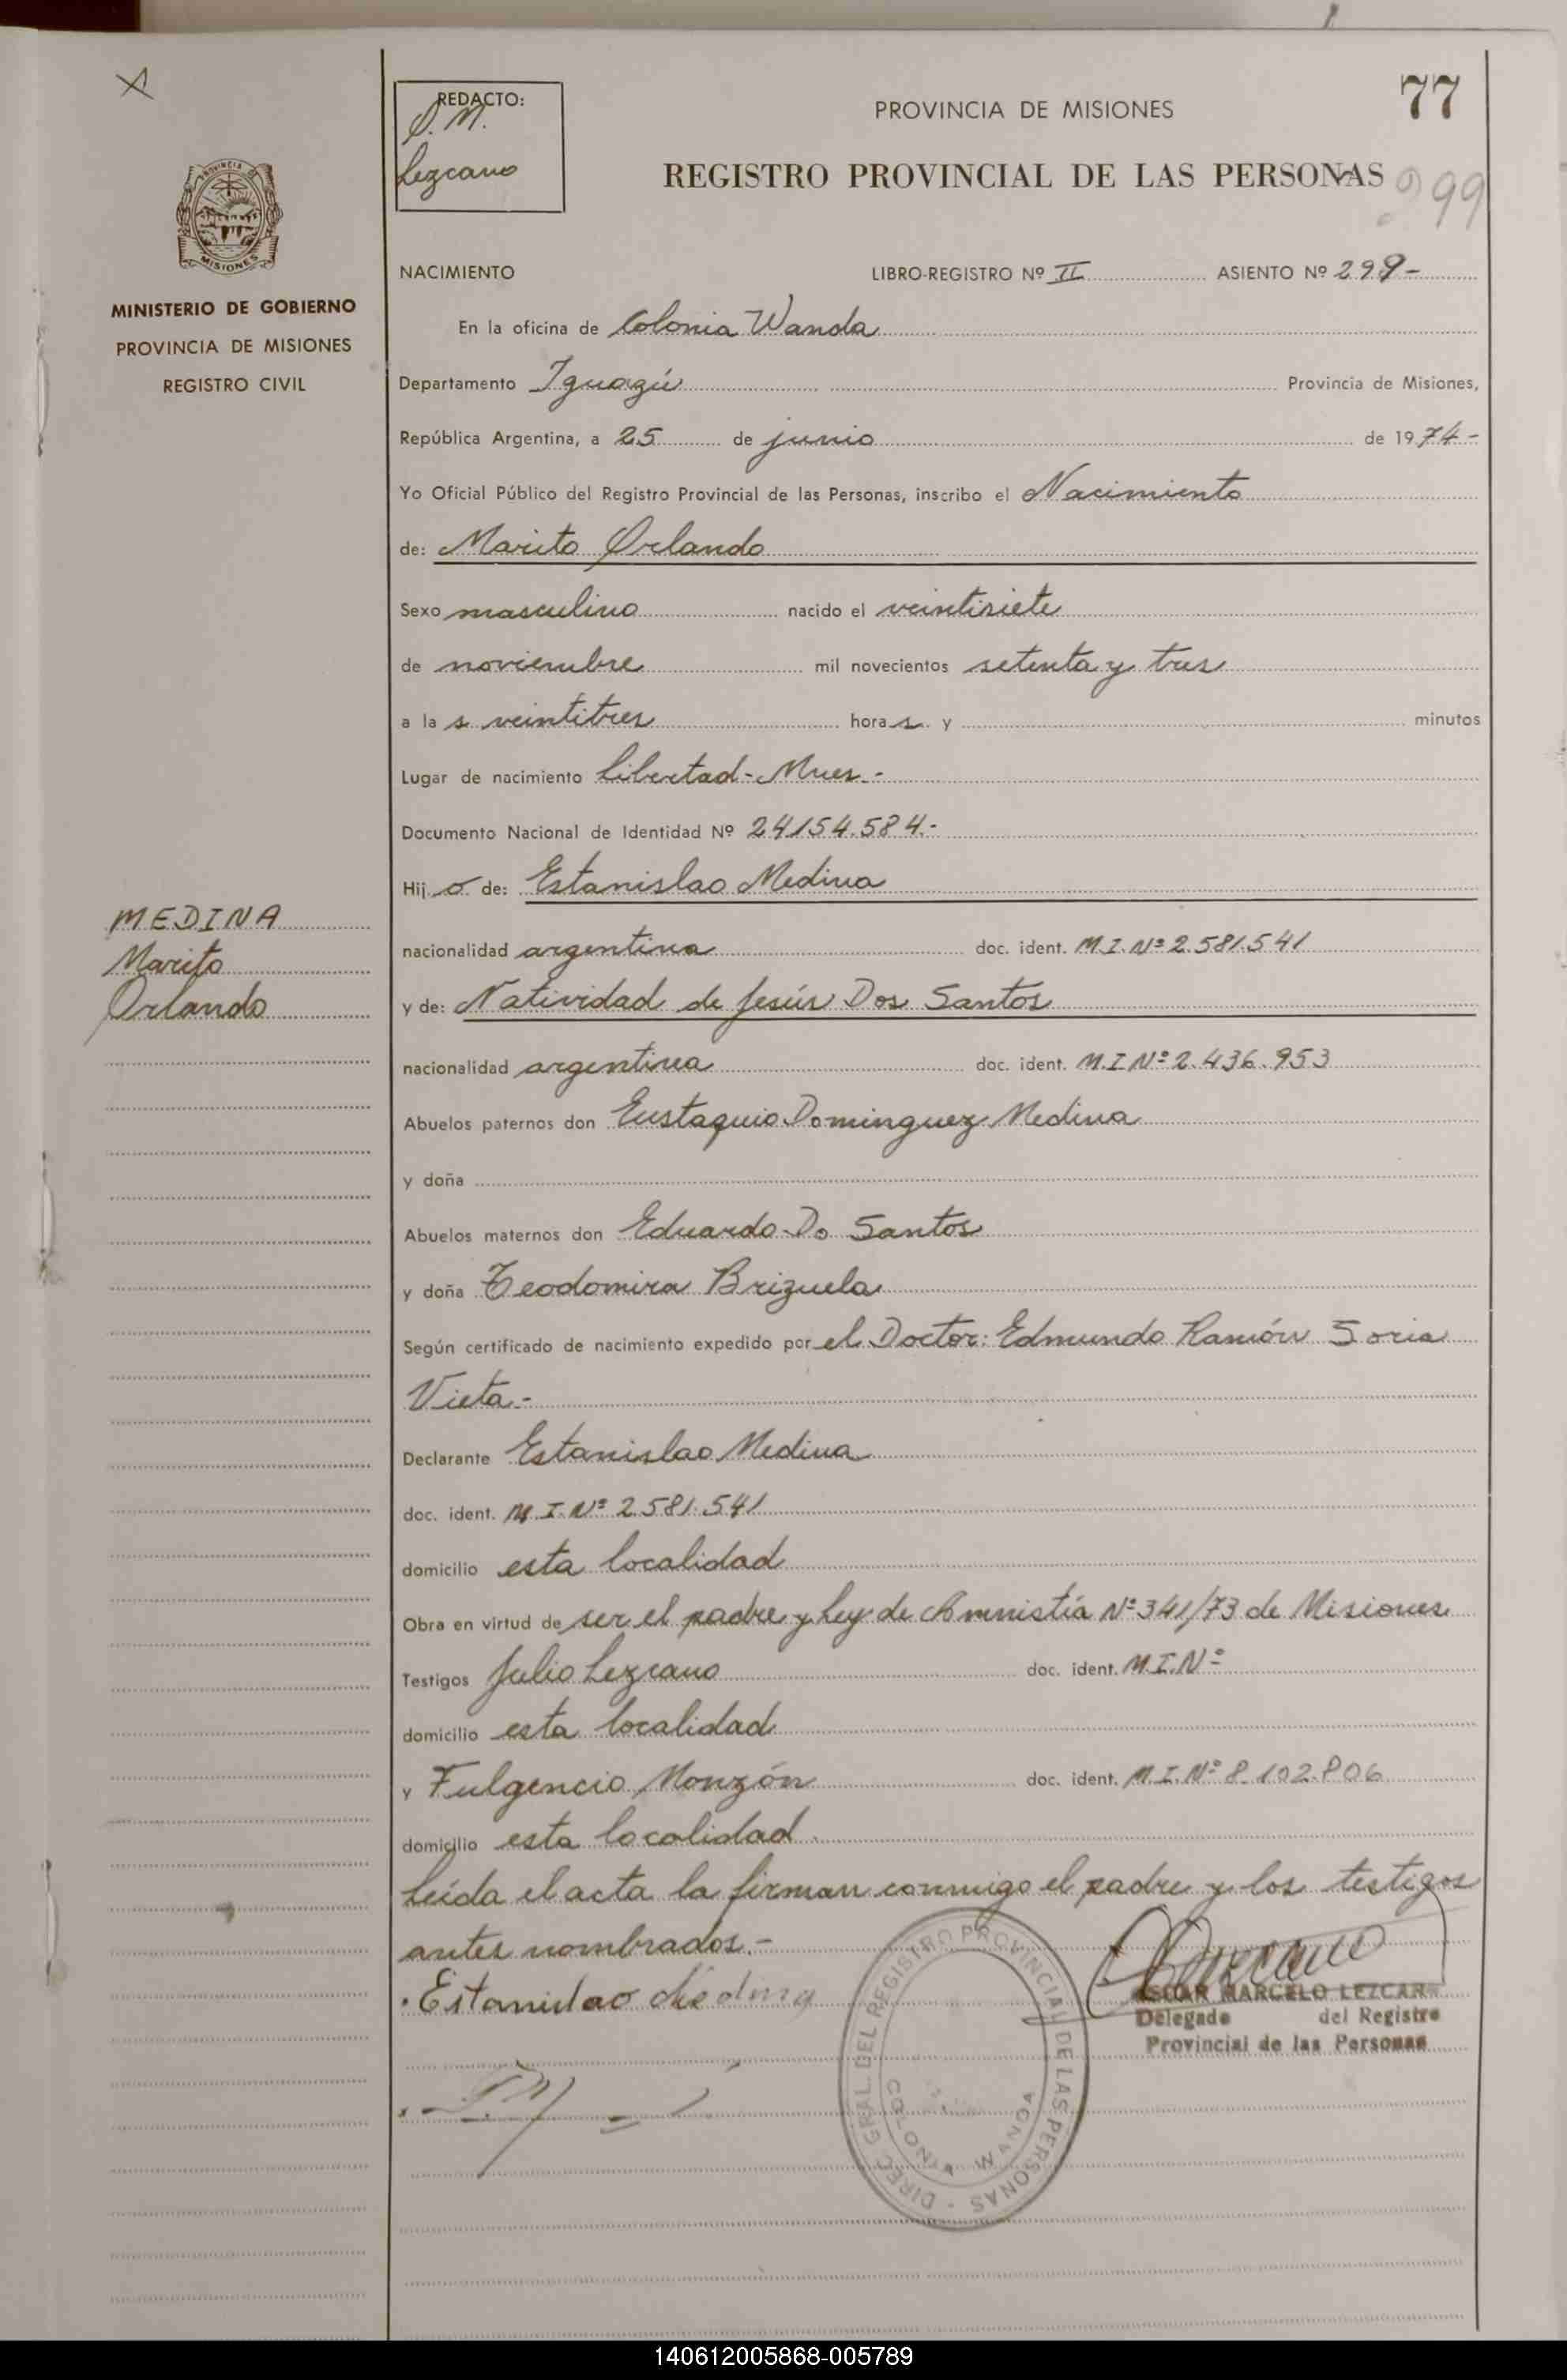 77
REDACTO:
O. M.
Lezcano
PROVINCIA DE MISIONES
REGISTRO PROVINCIAL DE LAS PERSONAS
99
PROVINCIA
MISIONES
MINISTERIO DE GOBIERNO
PROVINCIA DE MISIONES
REGISTRO CIVIL
NACIMIENTO LIBRO-REGISTRO Nº II ASIENTO Nº 299-
En la oficina de Colonia Wanda
Departamento Iguazú Provincia de Misiones,
República Argentina, a 25 de junio de 1974-
Yo Oficial Público del Registro Provincial de las Personas, inscribo el Nacimiento
de: Marito Orlando
Sexo masculino nacido el veintisiete
de noviembre mil novecientos setenta y tres
a las veintitres horas y minutos
Lugar de nacimiento Libertad-Mnes.-
Documento Nacional de Identidad Nº 24154.584.-
Hijo de: Estanislao Medina
MEDINA
Marito
Orlando
nacionalidad argentina doc. ident. M.I.Nº 2.581.541
y de: Natividad de Jesús Dos Santos
nacionalidad argentina doc. ident. M.I Nº 2.436.953
Abuelos paternos don Eustaquio Dominguez Medina
y doña
Abuelos maternos don Eduardo Do Santos
y doña Teodomira Brizuela
Según certificado de nacimiento expedido por el Doctor: Edmundo Ramón Soria
Vieta.-
Declarante Estanislao Medina
doc. ident. M.I.Nº 2.581.541
domicilio esta localidad
Obra en virtud de ser el padre y Ley de Amnistía Nº 341/73 de Misiones
Testigos Julio Lezcano doc. ident. M.I.Nº
domicilio esta localidad
y Fulgencio Monzón doc. ident. M.I.Nº 8.102.806
domicilio esta localidad
Leída el acta la firman conmigo el padre y los testigos
antes nombrados.-
Estanislao Medina
OSCAR MARCELO LEZCANO
Delegado del Registro
Provincial de las Personas
DIREC. GRAL. DEL REGISTRO PROVINCIAL DE LAS PERSONAS
COLONIA WANDA
140612005868-005789